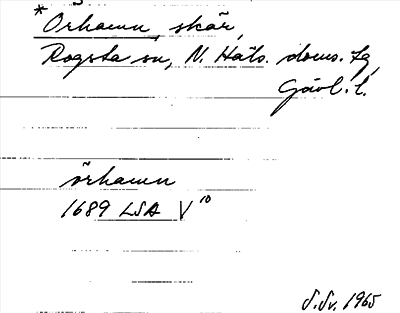 *Örhamn, skär,
Rogsta sn, N. Häls. doms. tg,
Gävl. l.
örhamn
1689 LSA V¹⁰
S. Sv. 1965